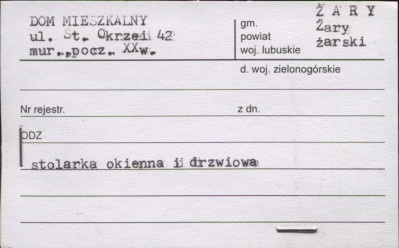 DOM MIESZKALNY
ul. St. Okrzei 42
mur.,pocz. XXw.
gm.
powiat
woj. lubuskie
Ż A R Y
Żary
żarski
d. woj. zielonogórskie
Nr rejestr.
z dn.
ODZ
stolarka okienna i drzwiowa